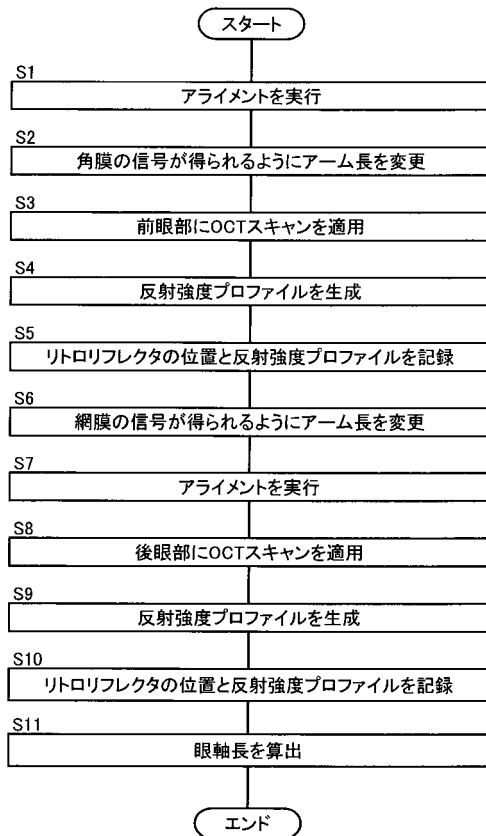 スタート
S1
アライメントを実行
S2
角膜の信号が得られるようにアーム長を変更
S3
前眼部にOCTスキャンを適用
S4
反射強度プロファイルを生成
S5
リトロリフレクタの位置と反射強度プロファイルを記録
S6
網膜の信号が得られるようにアーム長を変更
S7
アライメントを実行
S8
後眼部にOCTスキャンを適用
S9
反射強度プロファイルを生成
S10
リトロリフレクタの位置と反射強度プロファイルを記録
S11
眼軸長を算出
エンド